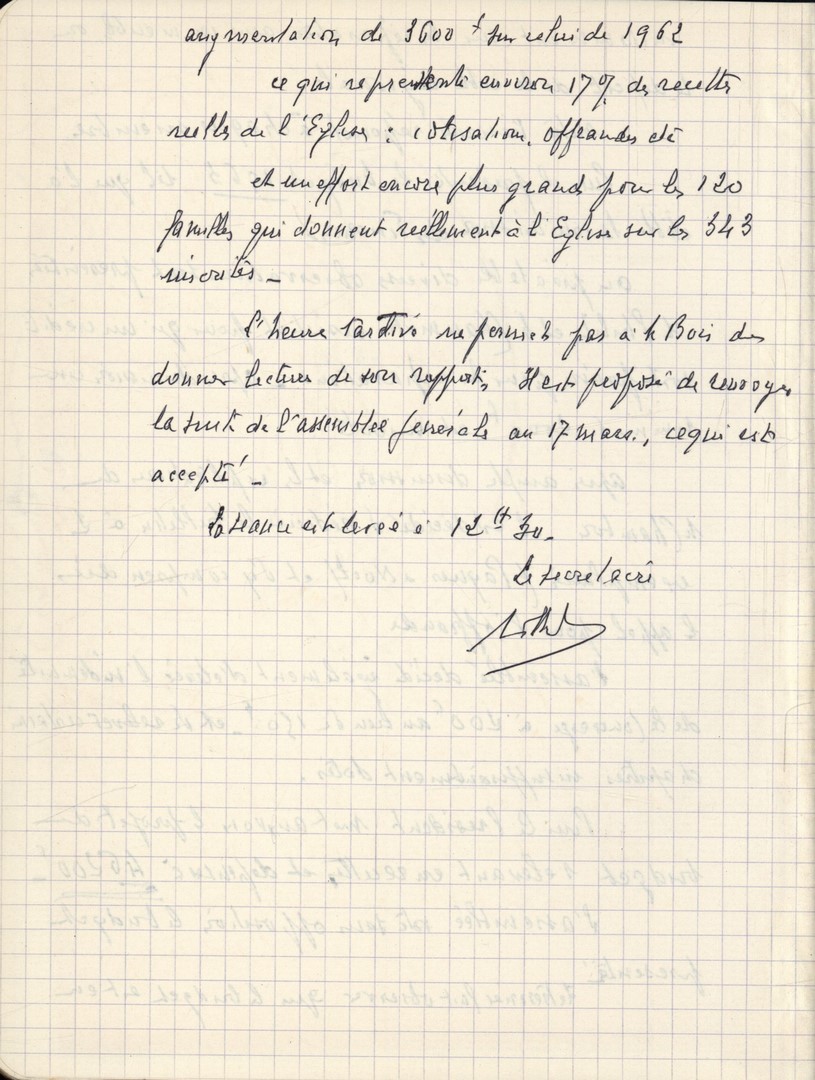 augmentation de 3600 f sur celui de 1962
ce qui représente environ 17% des recettes
réelles de l'Eglise : cotisation, offrandes etc
et un effort encore plus grand pour les 120
familles qui donnent réellement à l'Eglise sur les 343
inscrites _
L'heure tardive ne permet pas à M. Bois de
donner lecture de son rapport. Il est proposé de renvoyer
la suite de l'assemblée générale au 17 mars, ce qui est
accepté _
La séance est levée à 12 H 30 _
Le secrétaire